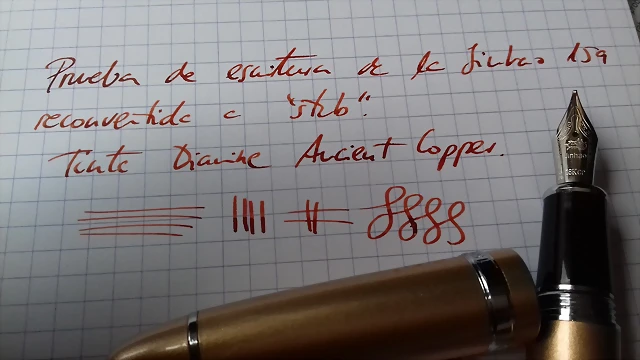 Prueba de escritura de la Jinhao 159
reconvertida a "stub".
Tinta Diamine Ancient Copper.
Jinhao
18KGP